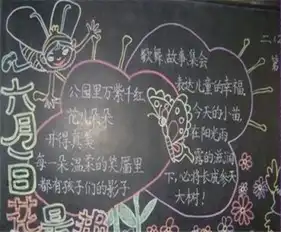 六月一日
公园里万紫千红
花儿朵朵
开得真美
每一朵温柔的笑靥里
都有孩子们的影子
歌舞故事集会
表达儿童的幸福
今天的小苗
在阳光雨
露的滋润
下,必将长成参天
大树!
二.
第
花